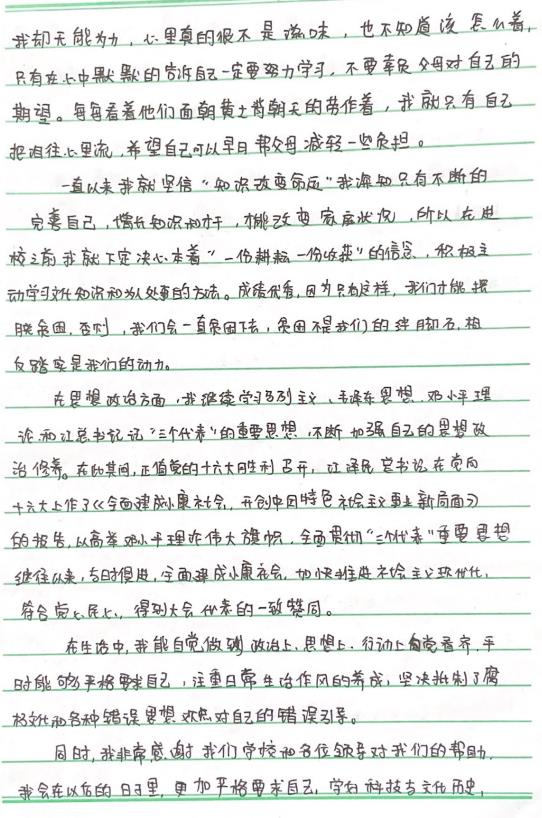 我却无能为力，心里真的很不是滋味，也不知道该怎么着，
只有在心中默默的告诉自己一定要努力学习，不要辜负父母对自己的
期望。每每看着他们面朝黄土背朝天的劳作着，我就只有自己
把泪往心里流，希望自己可以早日帮父母减轻一些负担。
一直以来我就坚信“知识改变命运”我深知只有不断的
完善自己，增长知识和才干，才能改变家庭状况，所以在进
校之前我就下定决心本着“一份耕耘一份收获”的信念，积极主
动学习文化知识和为人处事的方法。成绩优秀，因为只有这样，我们才能摆
脱贫困，否则，我们会一直贫困下去，贫困不是我们的绊脚石，相
反踏实是我们的动力。
在思想政治方面，我继续学习马列主义、毛泽东思想、邓小平理
论和江总书记“三个代表”的重要思想，不断加强自己的思想政
治修养。在此其间，正值党的十六大胜利召开，江泽民总书记在党的
十六大上作了《全面建成小康社会，开创中国特色社会主义事业新局面》
的报告，以高举邓小平理论伟大旗帜，全面贯彻“三个代表”重要思想
继往以来，与时俱进，全面建成小康社会，加快推进社会主义现代化，
符合党心民心，得到大会代表的一致赞同。
在生活中，我能自觉做到政治上、思想上、行动上自觉看齐，平
时能够严格要求自己，注重日常生活作风的养成，坚决抵制了腐
朽文化和各种错误思想观点对自己的错误引导。
同时，我非常感谢我们学校和各位领导对我们的帮助，
我会在以后的日子里，更加严格要求自己，学好科技与文化历史，